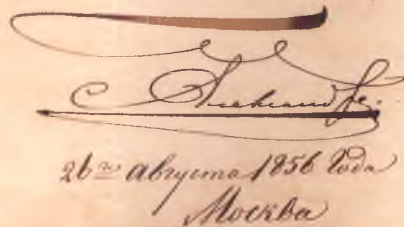 Александръ
26го августа 1856 года
Москва